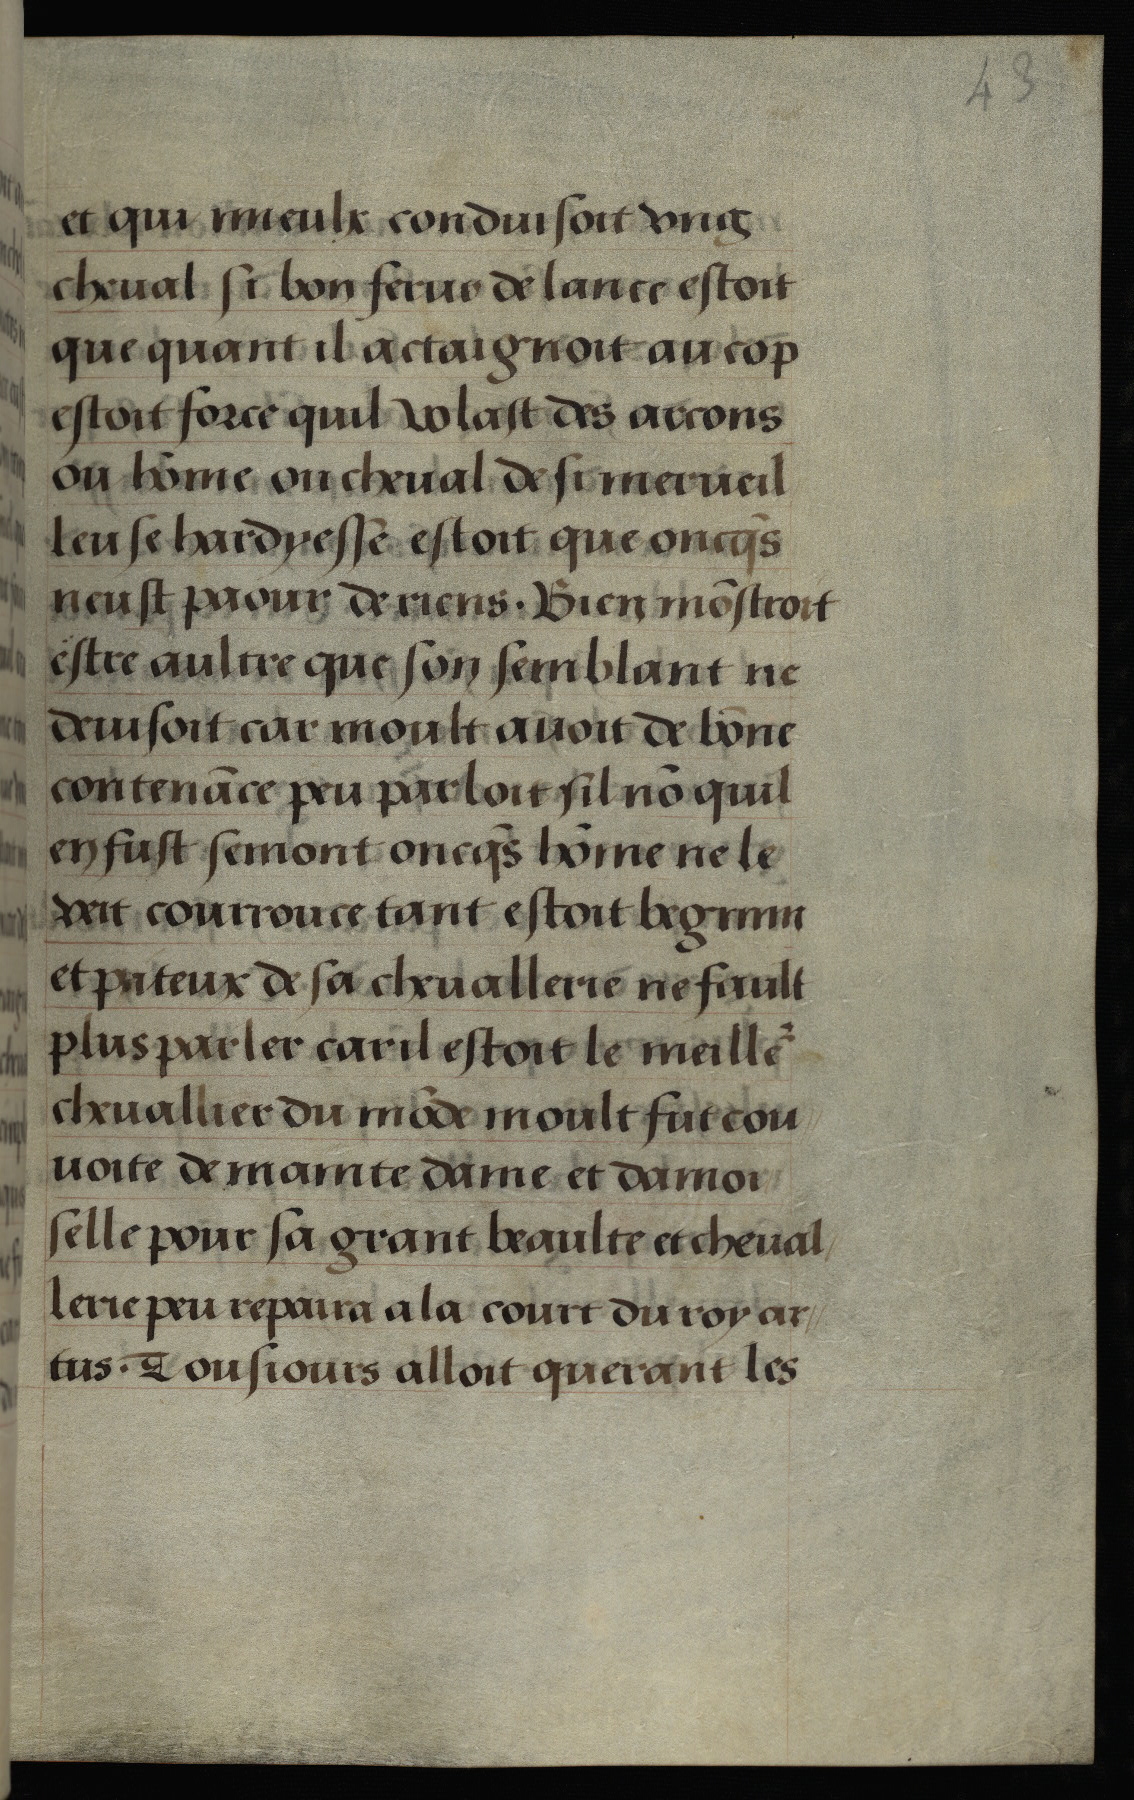 43
et qui mieulx conduisoit vng
cheual si bon ferue de lance estoit
que quant il actaignoit au cop
estoit force quil volast des arcons
ou hōme ou cheual de si merueil
leuse hardyesse estoit que oncq̄s
neust paour de riens. Bien mōstroit
estre aultre que son semblant ne
deuisoit car moult auoit de bōne
contenāce peu parloit sil nō quil
en fust semont oncq̄s hōme ne le
veit courrouce tant estoit begnini
et piteux de sa cheuallerie ne fault
plus parler car il estoit le meilleᷣ
cheuallier du mōde moult fut cou//
uoite de mainte dame et damoi
selle pour sa grant beaulte et cheual/
lerie peu repaira a la court du roy ar//
tus. Tousiours alloit querant les